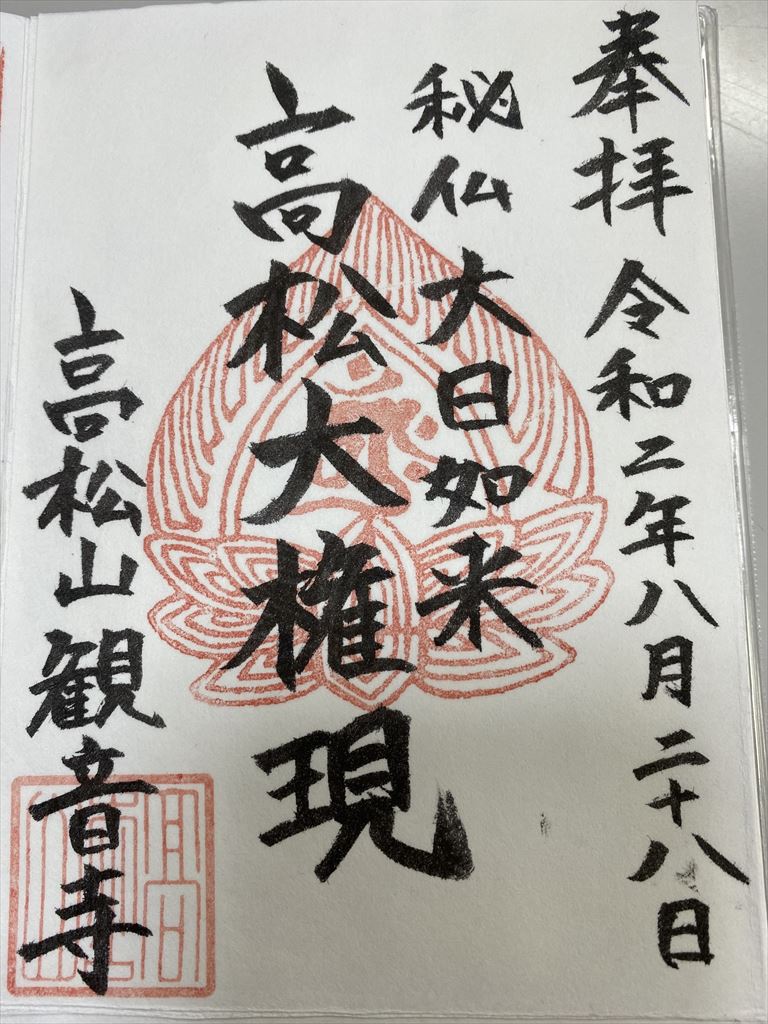 奉拝 令和二年八月二十八日
秘仏 大日如来
高松大権現
高松山観音寺